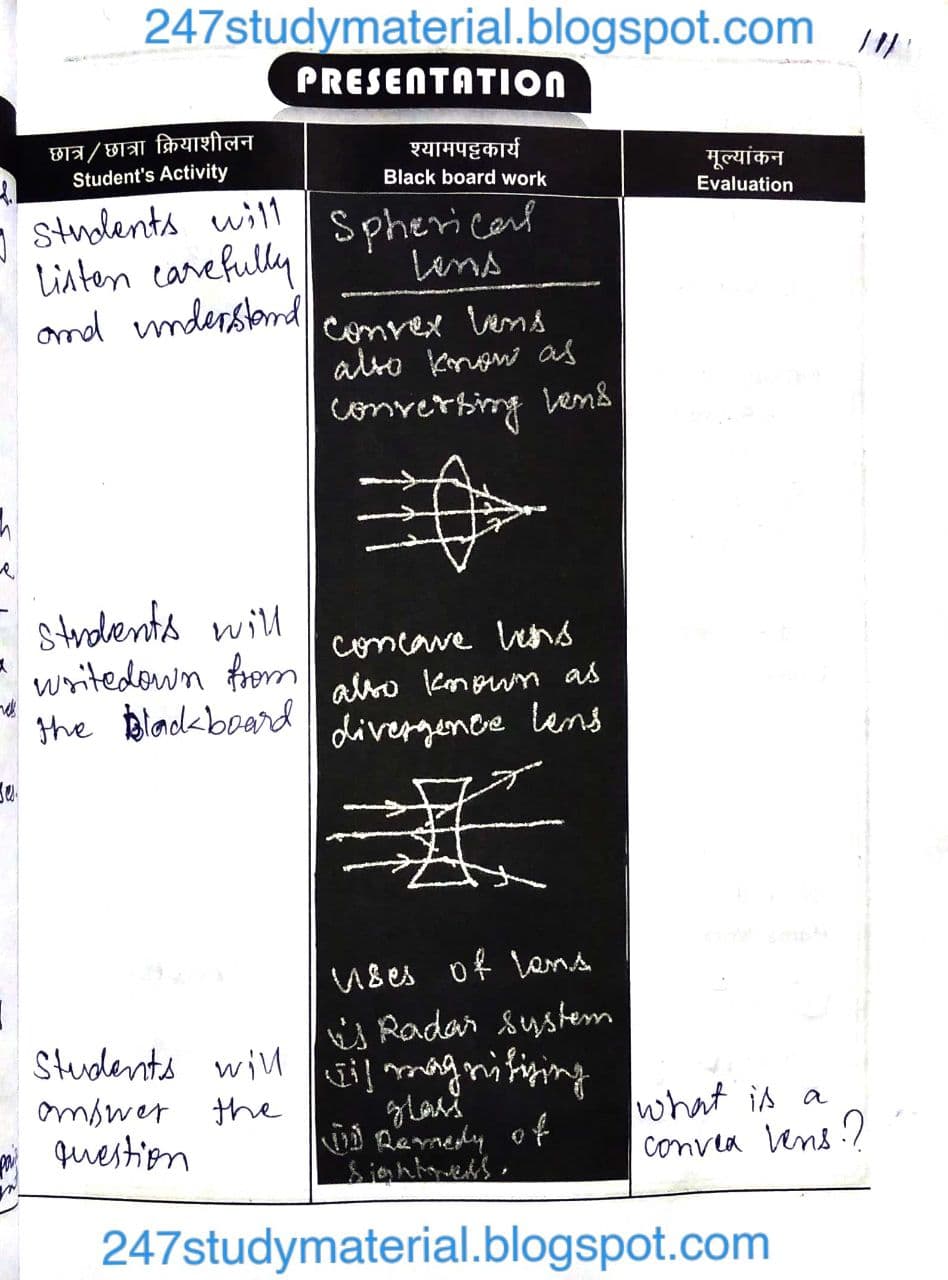 247studymaterial.blogspot.com
111
PRESENTATION
छात्र/छात्रा क्रियाशीलन
Student's Activity
श्यामपट्टकार्य
Black board work
मूल्यांकन
Evaluation
Students will
listen carefully
and understand
Spherical
lens
convex lens
also know as
converging lens
Students will
writedown from
the blackboard
concave lens
also known as
divergence lens
uses of lens
i) Radar system
ii) magnifying
glass
iii) Remedy of
Students will
answer the
question
what is a
convex lens?
247studymaterial.blogspot.com